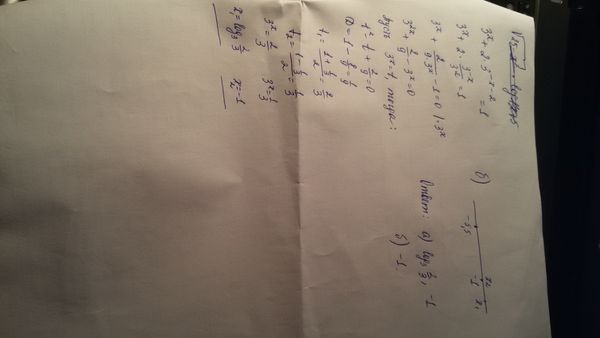 3^x + 2·3^{-2-x} = 1
3^x + 2·\frac{3^{-2}}{3^x} = 1
3^x + \frac{2}{9·3^x} - 1 = 0 |·3^x
3^{2x} + \frac{2}{9} - 3^x = 0
Пусть 3^x = t, тогда:
t^2 - t + \frac{2}{9} = 0
D = 1 - \frac{8}{9} = \frac{1}{9}
t_1 = \frac{1 + \frac{1}{3}}{2} = \frac{2}{3}
t_2 = \frac{1 - \frac{1}{3}}{2} = \frac{1}{3}
3^x = \frac{2}{3} 3^x = \frac{1}{3}
x_1 = log_3 \frac{2}{3} x_2 = -1
б)
-1,5 x_2 -1 x_1
Ответ: а) log_3 \frac{2}{3}, -1
б) -1.